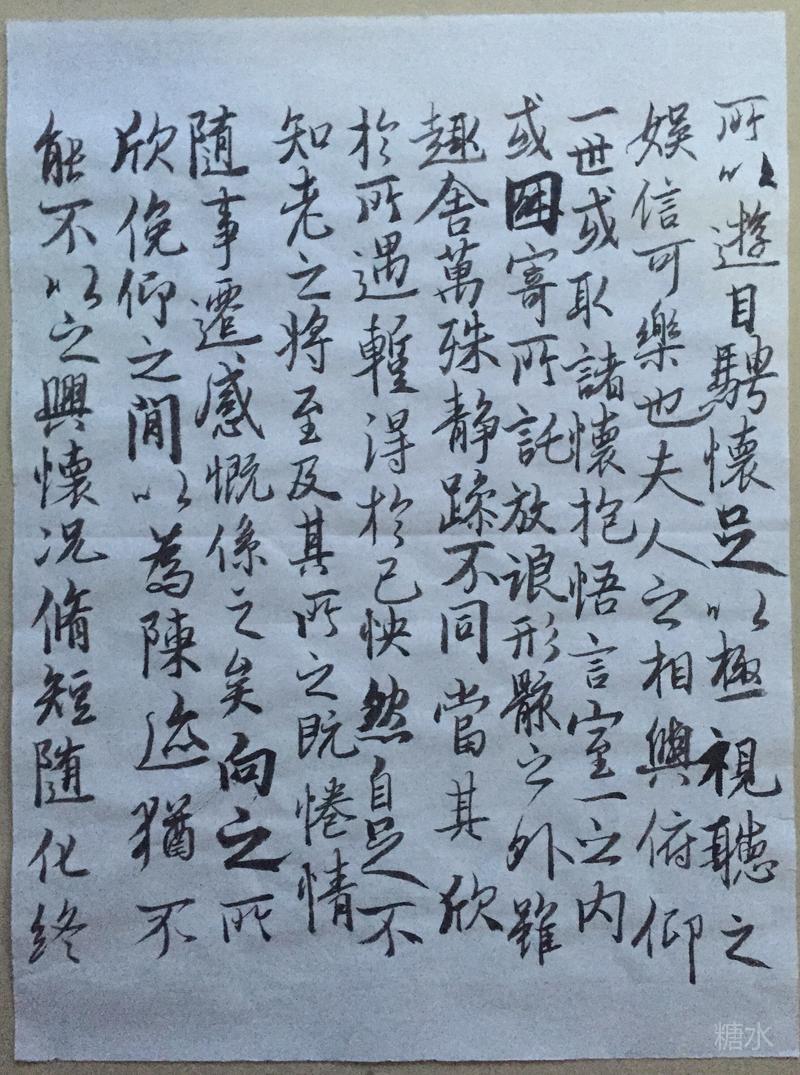 所以遊目騁懷足以極視聽之
娛信可樂也夫人之相與俯仰
一世或取諸懷抱悟言室一之内
或因寄所託放浪形骸之外雖
趣舍萬殊静躁不同當其欣
於所遇暫得於己怏然自足不
知老之將至及其所之既惓情
随事遷感慨係之矣向之所
欣俛仰之閒以為陳迹猶不
能不以之興懷况脩短随化終
糖水